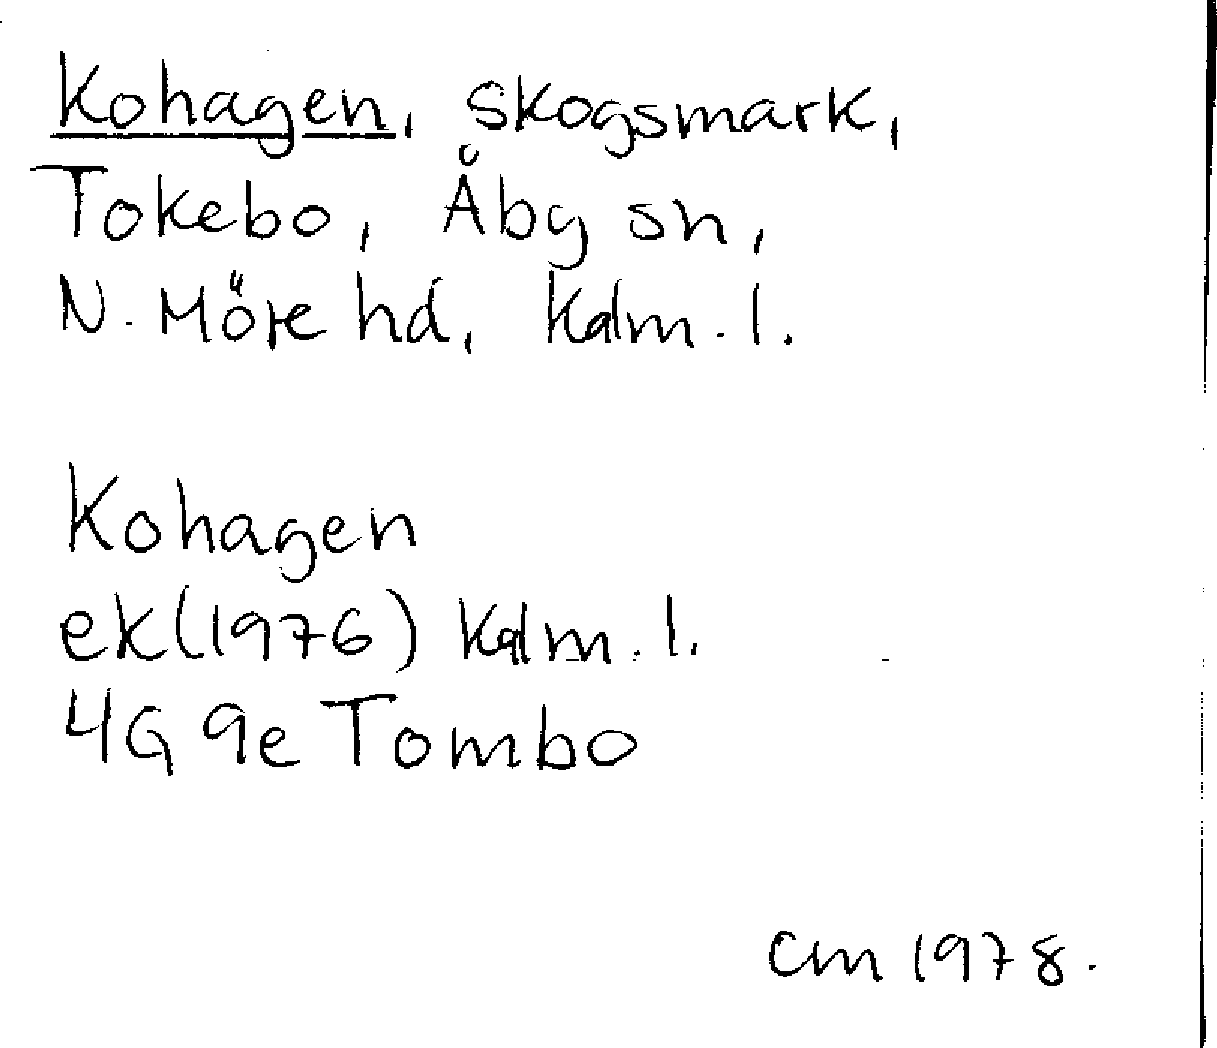 Kohagen, skogsmark,
Tokebo, Åby sn,
N. Möre hd, Kalm. l.
Kohagen
ek (1976) Kalm. l.
4G 9e Tombo
CM 1978.